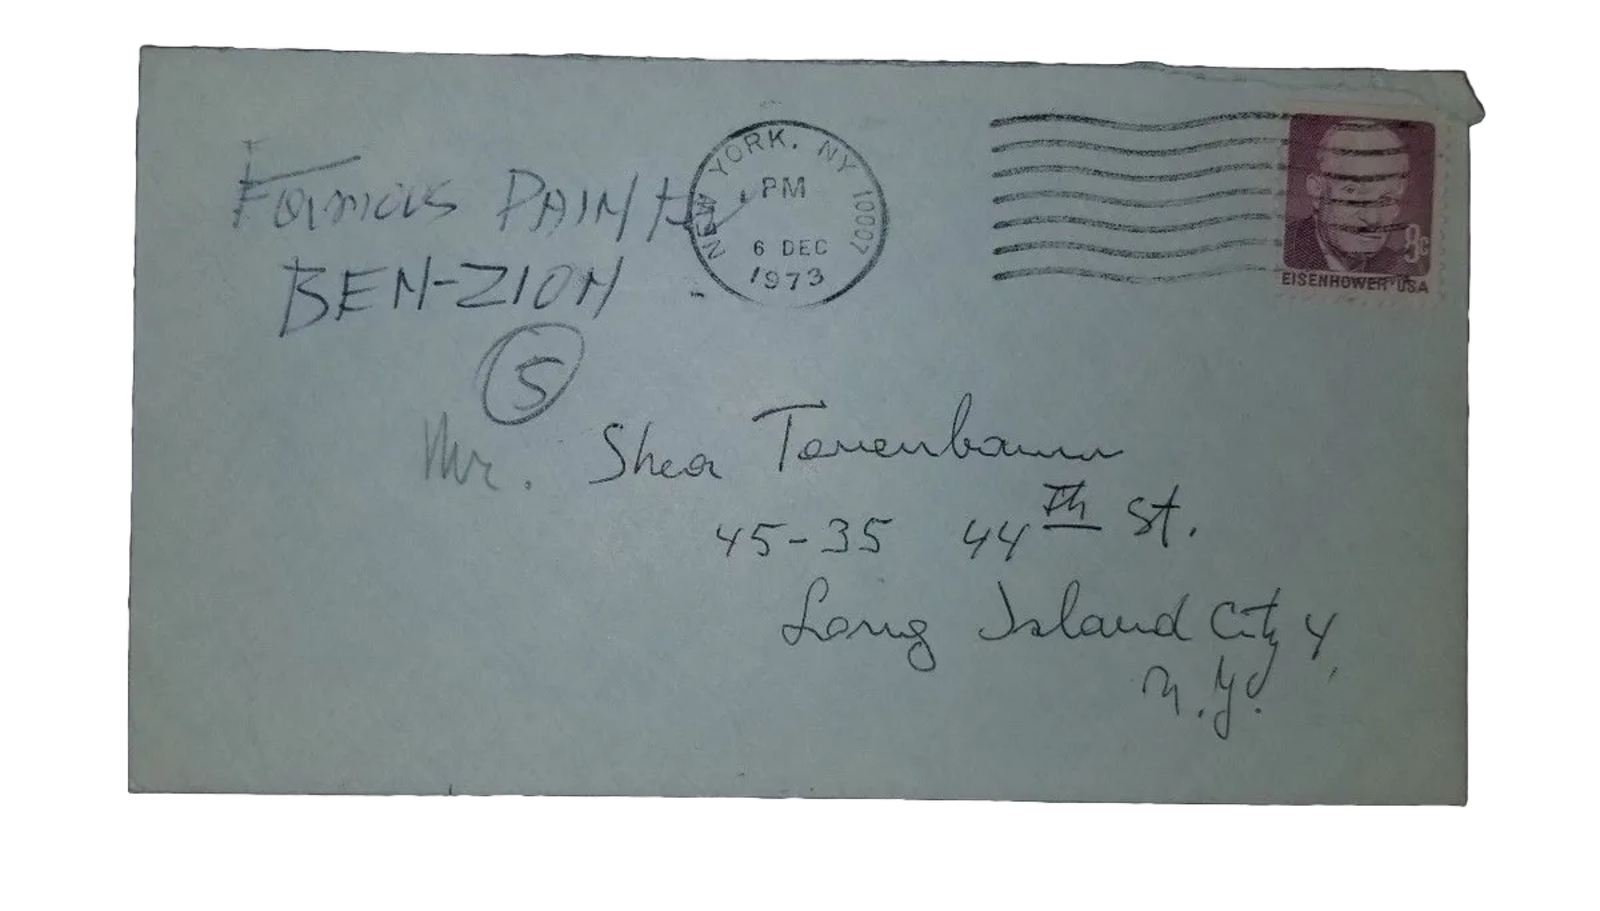 Famous PAINter
BEN-ZION
5
NEW YORK, NY 10007
PM
6 DEC
1973
8c
EISENHOWER·USA
Mr. Shea Tenenbaum
45-35 44th St.
Long Island City 4,
N.Y.